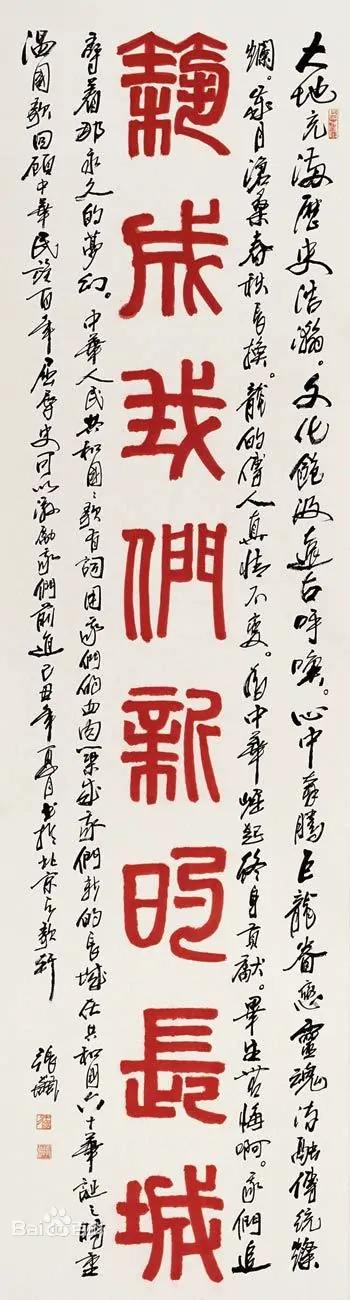 大地充满歷史浩瀚。文化飽汲遠古呼唤。心中奔騰巨龍眷戀靈魂消融傳統燦
爛。歲月滄桑春秋長换。龍的傳人真情不变。為中華崛起終身貢獻。畢生無悔啊。我們追
築成我們新的長城
尋着那永久的夢幻。中華人民共和國國歌有詞用我們的血肉築成我們新的長城在共和國六十華誕之時重
温國歌回顧中華民族百年屈辱史可以激勵我們前進己丑年夏月書於北京
張繼
Bai百科